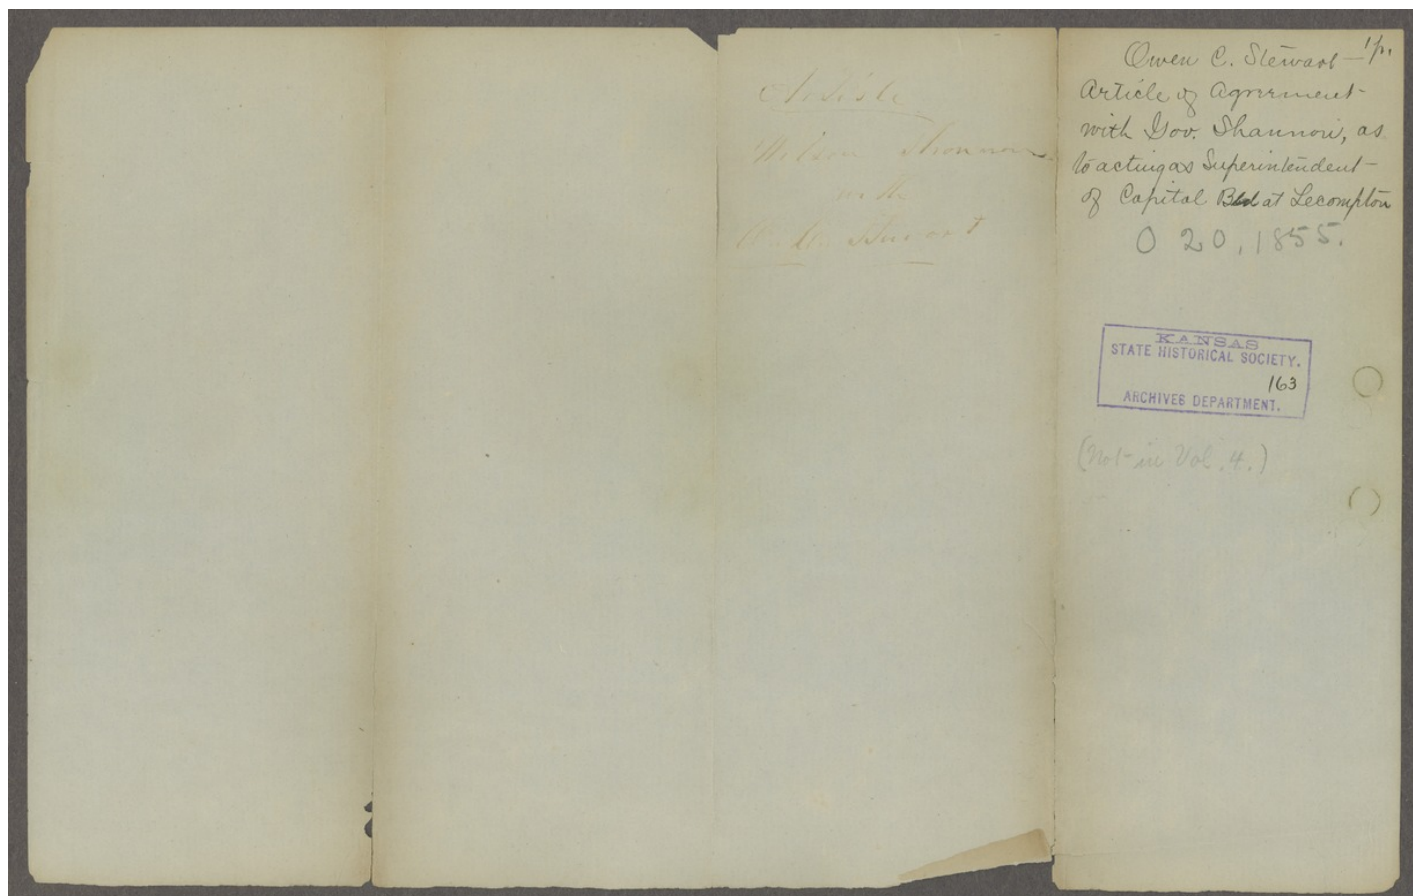 Article
Wilson Shannon
with
Stewart
Owen C. Stewart — 1 p.
Article of Agreement
with Gov. Shannon, as
to acting as Superintendent
of Capital Bld at Lecompton
O 20, 1855.
KANSAS
STATE HISTORICAL SOCIETY.
163
ARCHIVES DEPARTMENT.
(Not in Vol. 4.)